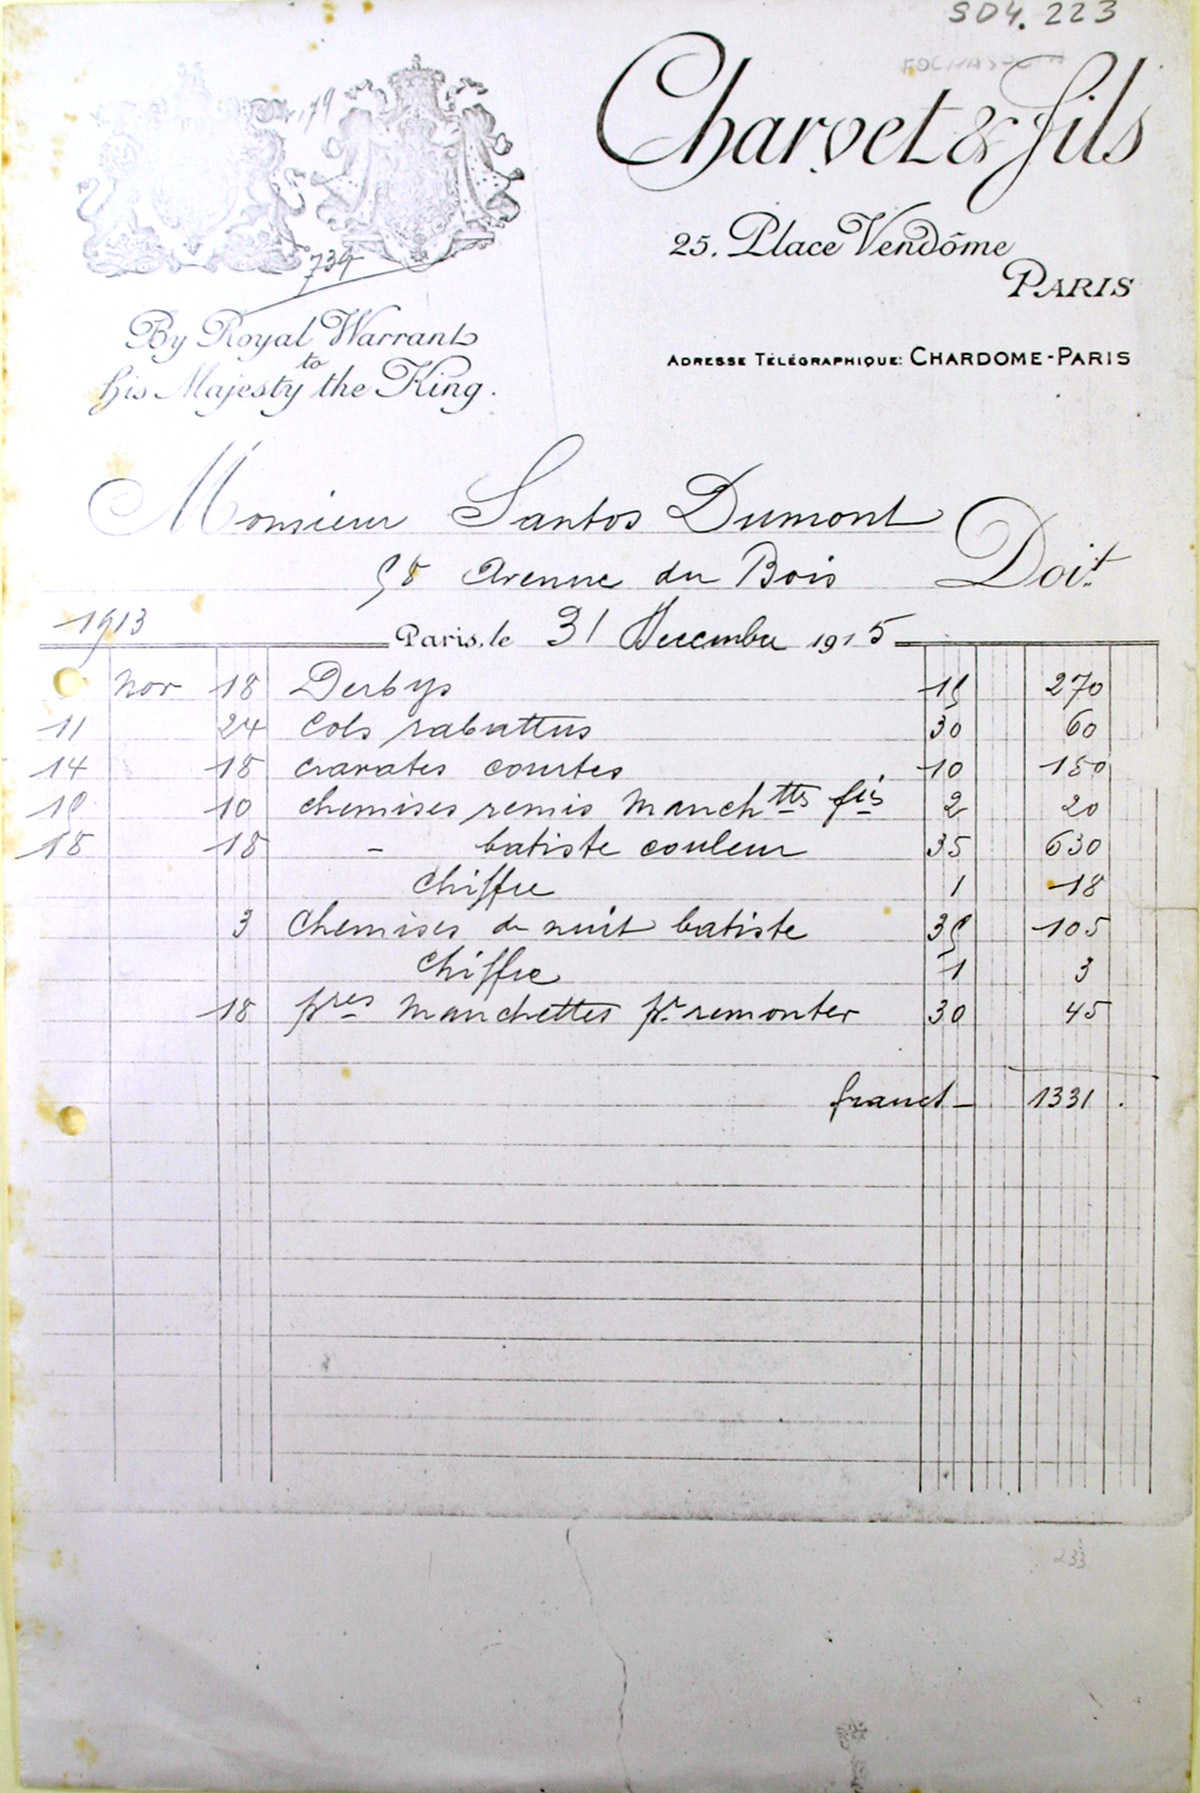 SD4.223
Charvet & fils
25. Place Vendôme
PARIS
ADRESSE TÉLÉGRAPHIQUE: CHARDOME-PARIS
179
739
By Royal Warrant
to
His Majesty the King.
Monsieur Santos Dumont
58 Avenue du Bois Doit
1913
Paris, le 31 Decembre 1915
Nov 18 Derbys 15 270
11 24 Cols rabattus 30 60
14 18 cravates courtes 10 180
10 chemises remis manchtts fis 2 20
18 18 - batiste couleur 35 630
Chiffre 1 18
3 Chemises de nuit batiste 35 105
Chiffre 1 3
18 pres Manchettes pr remonter 30 45
francs - 1331 .
233